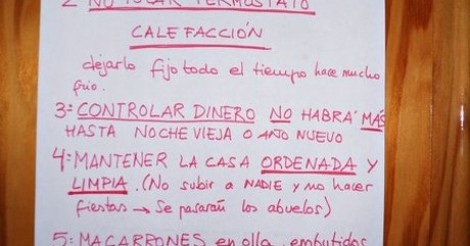 2- NO TOCAR TERMOSTATO
CALEFACCIÓN
dejarlo fijo todo el tiempo hace mucho
frio.
3= CONTROLAR DINERO NO HABRÁ MÁS
HASTA NOCHE VIEJA O AÑO NUEVO
4= MANTENER LA CASA ORDENADA Y
LIMPIA. (No subir a NADIE y no hacer
fiestas → Se pasarán los abuelos)
5= MACARRONES en olla, embutidos